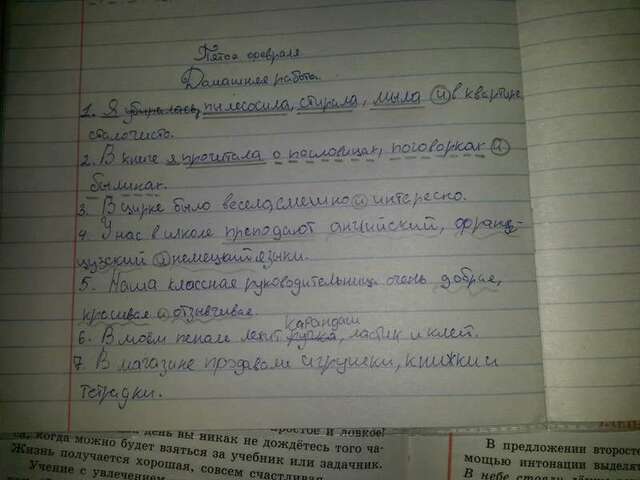 Пятое февраля
Домашняя работа.
1. Я убиралась, пылесосила, стирала, мыла и в квартире
стало чисто.
2. В книге я прочитала о пословицах, поговорках и
былинах.
3. В цирке было весело, смешно и интересно.
4. У нас в школе преподают английский, францу-
цузский и немецкий языки.
5. Наша классная руководительница очень добрая,
красивая и отзывчивая.
карандаш
6. В моём пенале лежит ручка, ластик и клей.
7. В магазине продавали игрушки, книжки и
тетрадки.
простое и ловкое!
когда можно будет взяться за учебник или задачник.
день вы никак не дождётесь того ча-
Жизнь получается хорошая, совсем счастливая
Учение с увлечением
В предложении второсте
мощью интонации выделят
В небе стояли